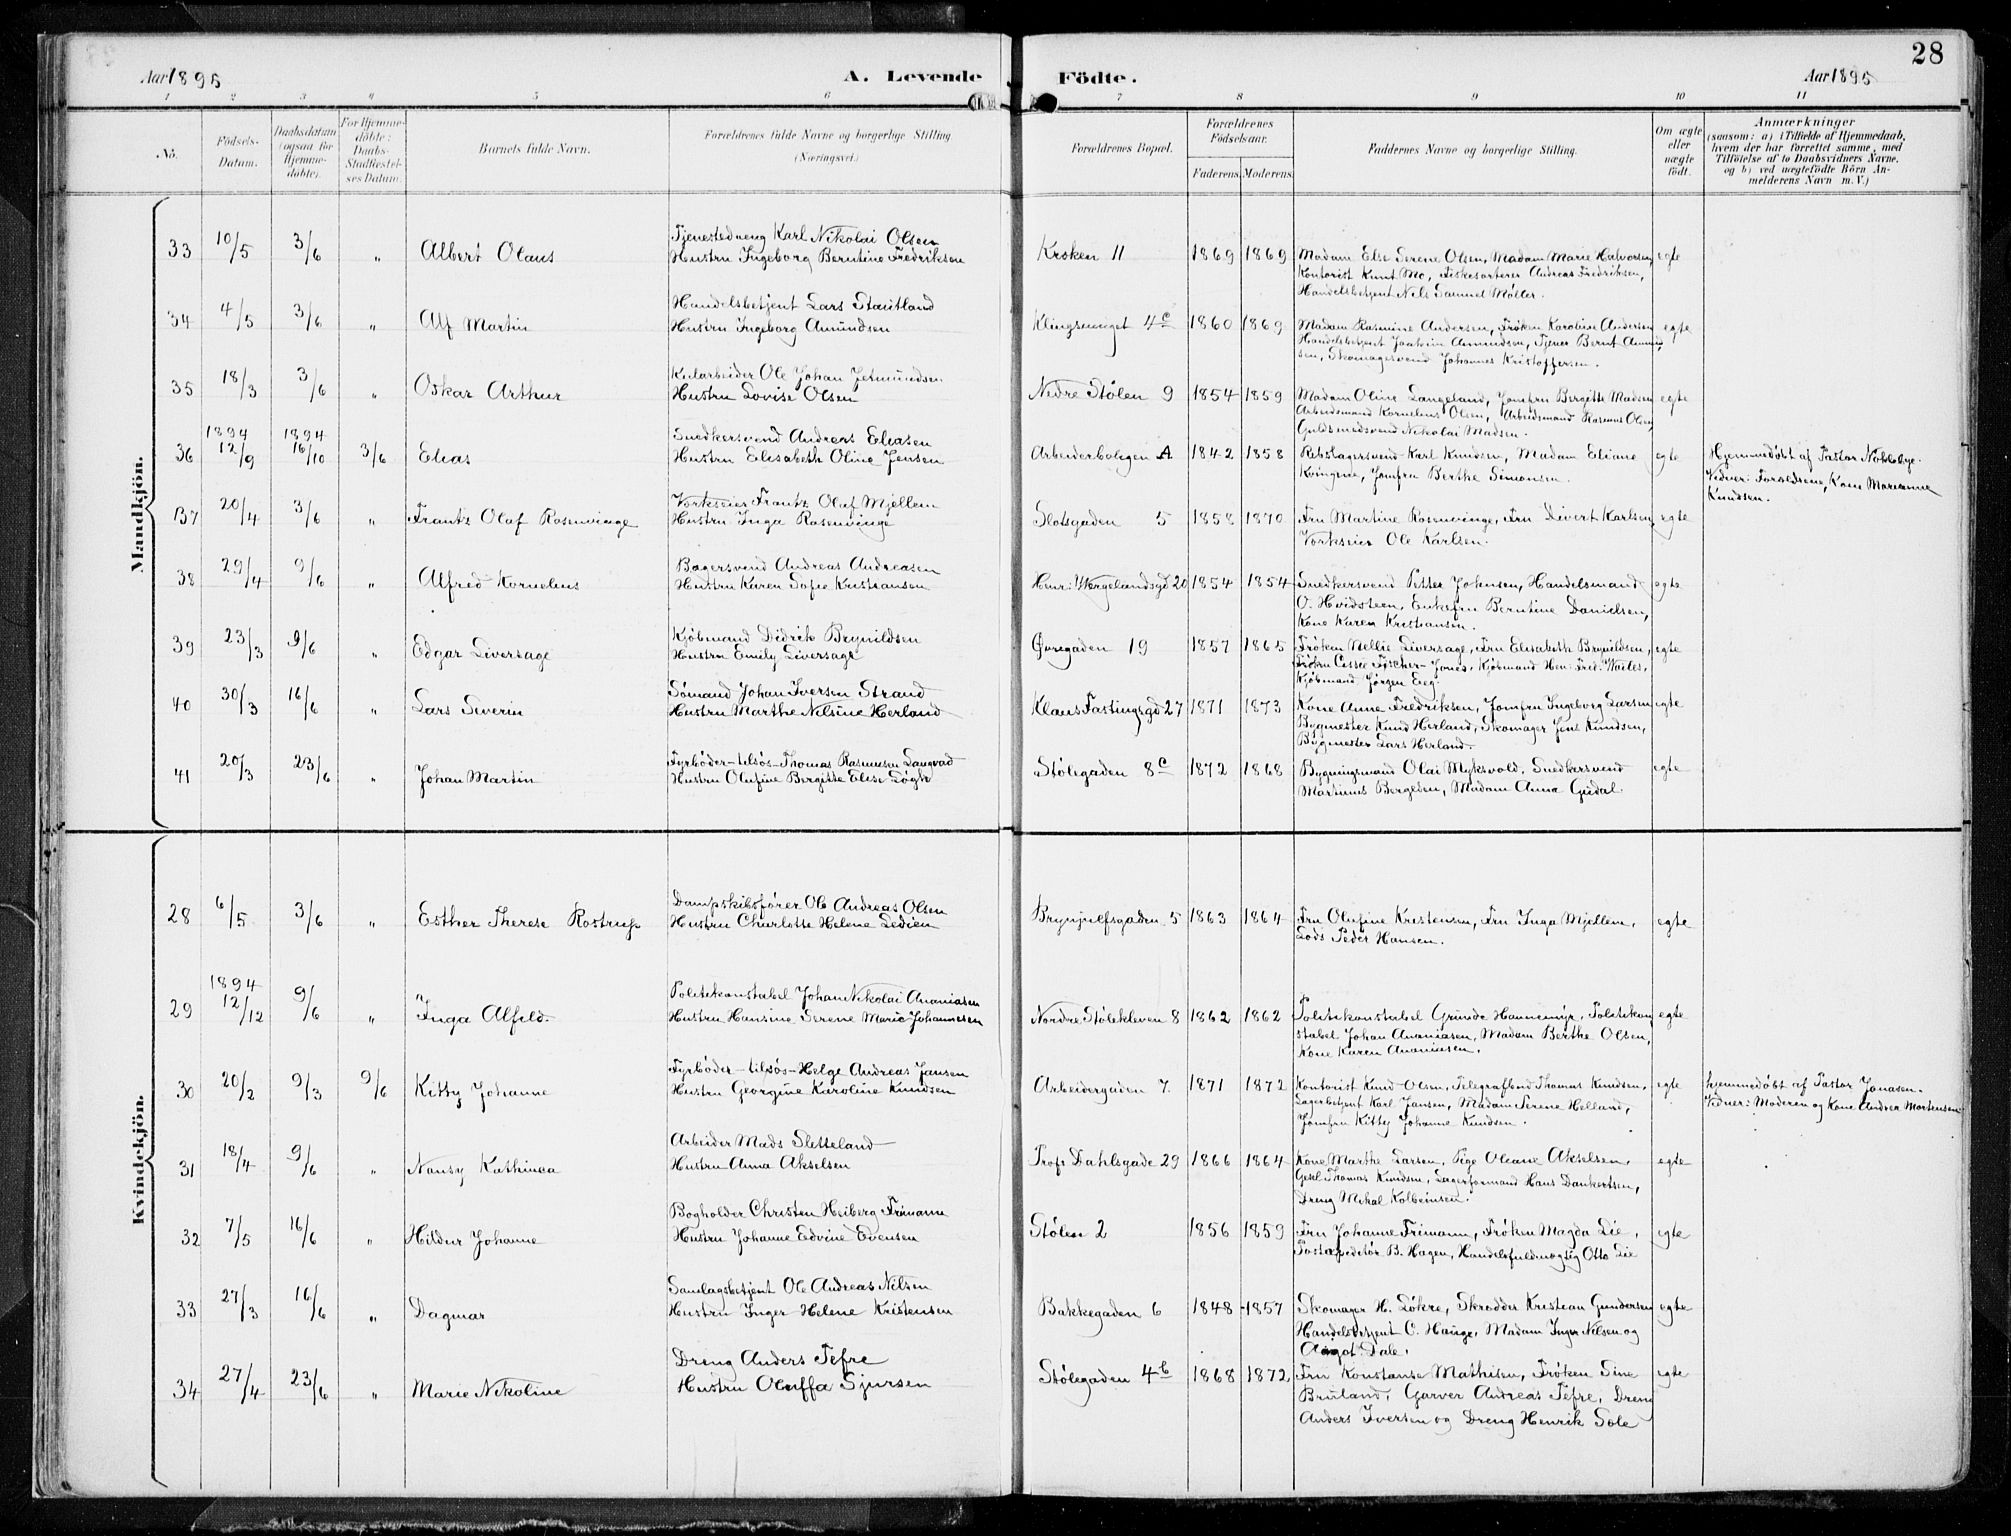 28
Aar 1895
A. Levende
Födte.
Aar 1895
1 2 3 4 5 6 7 8 9 10 11
No.
Födsels-Datum.
Daabsdatum (ogsaa for Hjemme-döbte).
For Hjemme-döbte: Daabs-Stadfæstel-ses Datum.
Barnets fulde Navn.
Forældrenes fulde Navne og borgerlige Stilling (Næringsvei.)
Forældrenes Bopæl.
Forældrenes Födselsaar.
Faderens. Moderens.
Faddernes Navne og borgerlige Stilling.
Om ægte eller uægte födt.
Anmærkninger
(saasom: a) i Tilfælde af Hjemmedaab, hvem der har forrettet samme, med Tilföielse af to Daabsvidners Navne, og b) ved uægtefödte Börn Anmelderens Navn m. V.)
Mandkjön.
33 10/5 3/6 " Albert Olaus
Tjenestedreng Karl Nikolai Olsen
Hustru Ingeborg Berntine Fredriksen
Kroken 11 1869 1869
Madam Else Serene Olsen, Madam Marie Halvorsen, egte
Kontorist Knut Mo, Fiskesorterer Andreas Fredriksen,
Handelsbetjent Nels Samuel Møller.
34 4/5 3/6 " Alf Martin
Handelsbetjent Lars Stautland
Hustru Ingeborg Amundsen
Klingsmuget 4c 1860 1869
Madam Rasmine Andersen, Frøken Karoline Andersen egte
Handelsbetjent Joakim Amundsen, Tjener Bernt Amund-
sen, Skomagersvend Johannes Kristoffersen.
35 18/3 3/6 " Oskar Arthur
Kularbeider Ole Johan Jetmundsen
Hustru Lovise Olsen
Nedre Stølen 9 1854 1859
Madam Oline Langeland, Jomfru Bergitte Madsen egte
Arbeidsmand Kornelius Olsen, Arbeidsmand Rasmus Olsen,
Guldsmedsvend Nikolai Madsen.
36 1894 12/9 1894 16/10 3/6 Elias
Snedkersvend Andreas Eliasen
Hustru Elisabeth Oline Jensen
Arbeiderboligen A 1842 1858
Rebslagersvend Karl Knudsen, Madam Eliane egte
Kvingene, Jomfru Berthe Simonsen.
Hjemmedøbt af Pastor Noklebye.
Vidner: Forældrene, Kone Marianne
Knudsen.
37 20/4 3/6 " Frantz Olaf Rosenvinge
Vorkseier Frantz Olaf Mjellem
Hustru Inga Rosenvinge
Slotsgaden 5 1858 1870
Fru Martine Rosenvinge, Fru Divert Karlsen, egte
Vorkseier Ole Karlsen.
38 29/4 9/6 " Alfred Kornelius
Bagersvend Andreas Andreasen
Hustru Karen Sofie Kristiansen
Henr: Wergelandsgd 20 1854 1854
Snedkersvend Petter Johnsen, Handelsmand egte
O. Hvidsteen, Enkefru Berntine Danielsen,
Kone Karen Kristiansen.
39 23/3 9/6 " Edgar Liversage
Kjøbmand Didrik Brynildsen
Hustru Emily Liversage
Øvregaden 19 1857 1865
Frøken Nellie Liversage, Fru Elisabeth Brynildsen, egte
Frøken Cissie Fischer-Jones, Kjøbmand Hen: Fred: Waeles,
Kjøbmand Jørgen Eeg.
40 30/3 16/6 " Lars Severin
Sømand Johan Iversen Strand
Hustru Marthe Nelsine Herland
Klaus Fastingsgd 27 1871 1873
Kone Anne Fredriksen, Jomfru Ingeborg Larsen egte
Bygmester Knud Herland, Skomager Jens Knudsen,
Bygmester Lars Herland.
41 20/3 23/6 " Johan Martin
Fyrbøder-tilsøs-Thomas Rasmusen Langvad
Hustru Olufine Bergitte Elise Løgte
Stølegaden 8c 1872 1868
Bygningsmand Olai Myksvold. Snedkersvend egte
Martinus Bergesen, Madam Anna Gudal.
Kvindekjön.
28 6/5 3/6 " Esther Therese Rostrup
Dampskibsfører Ole Andreas Olsen
Hustru Charlotte Helene Ledien
Brynjulfsgaden 5 1863 1864
Fru Olufine Kristensen, Fru Inga Mjellem, egte
Lods Peder Hansen.
29 1894 12/12 9/6 " Inga Alfild.
Politikonstabel Johan Nikolai Ananiasen
Hustru Hansine Serene Marie Johannesen
Nordre Stølekleven 8 1862 1862
Politikonstabel Grunde Hannemyr, Politikon- egte
stabel Johan Ananiasen, Madam Berthe Olsen,
Kone Karen Ananiasen.
30 20/2 9/3 9/6 Kitty Johanne
Fyrbøder-tilsøs-Helge Andreas Jansen
Hustru Georgine Karoline Knudsen
Arbeidergaden 7 1871 1872
Kontorist Knud Olsen, Telegrafbud Thomas Knudsen, egte
Lagerbetjent Karl Jansen, Madam Serene Helland,
Jomfru Kitty Johanne Knudsen.
hjemmedøbt af Pastor Jonasen.
Vidner: Moderen og Kone Andrea Mortensen
31 18/4 9/6 " Nansy Kathinca
Arbeider Mads Sletteland
Hustru Anna Akselsen
Prof: Dahlsgade 29 1866 1864
Kone Marthe Larsen, Pige Oleane Akselsen, egte
Gesel Thomas Knudsen, Lagerformand Hans Dankertsen,
Dreng Mikal Kolbeinsen.
32 7/5 16/6 " Hildur Johanne
Bogholder Christen Heiberg Frimann
Hustru Johanne Edvine Evensen
Stølen 2 1856 1859
Fru Johanne Frimann, Frøken Magda Lie, egte
Postexpeditør B. Hagen, Handelsfuldmægtig Otto Lie
33 27/3 16/6 " Dagmar
Samlagsbetjent Ole Andreas Nilsen
Hustru Inger Helene Kristensen
Bakkegaden 6 1848 1857
Skomager H. Løkre, Skrædder Kristian Gundersen egte
Handelsbetjent C. Hauge, Madam Inger Nilsen og
Aagot Dale.
34 27/4 23/6 " Marie Nikoline
Dreng Anders Tefre
Hustru Oluffa Sjursen
Stølegaden 4b 1868 1872
Fru Konstanse Mathisen, Frøken Sine egte
Bruland, Garver Andreas Tefre, Dreng
Anders Iversen og Dreng Henrik Sole